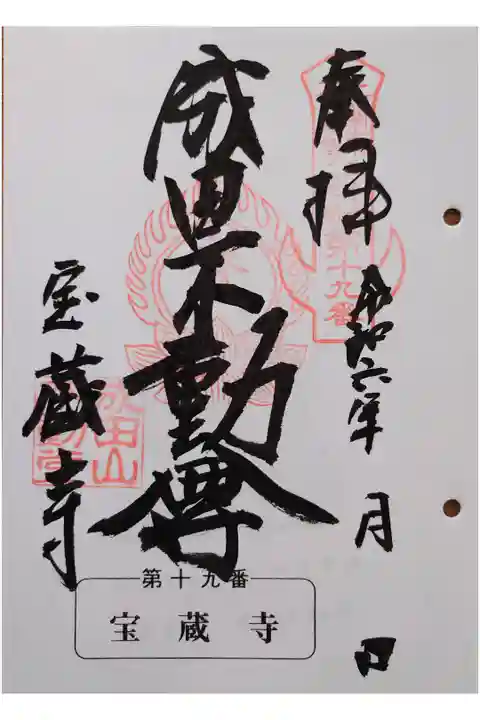 奉拝
令和六年 月 日
成田不動尊
宝蔵寺
第十九番
成田山
第十九番
宝蔵寺